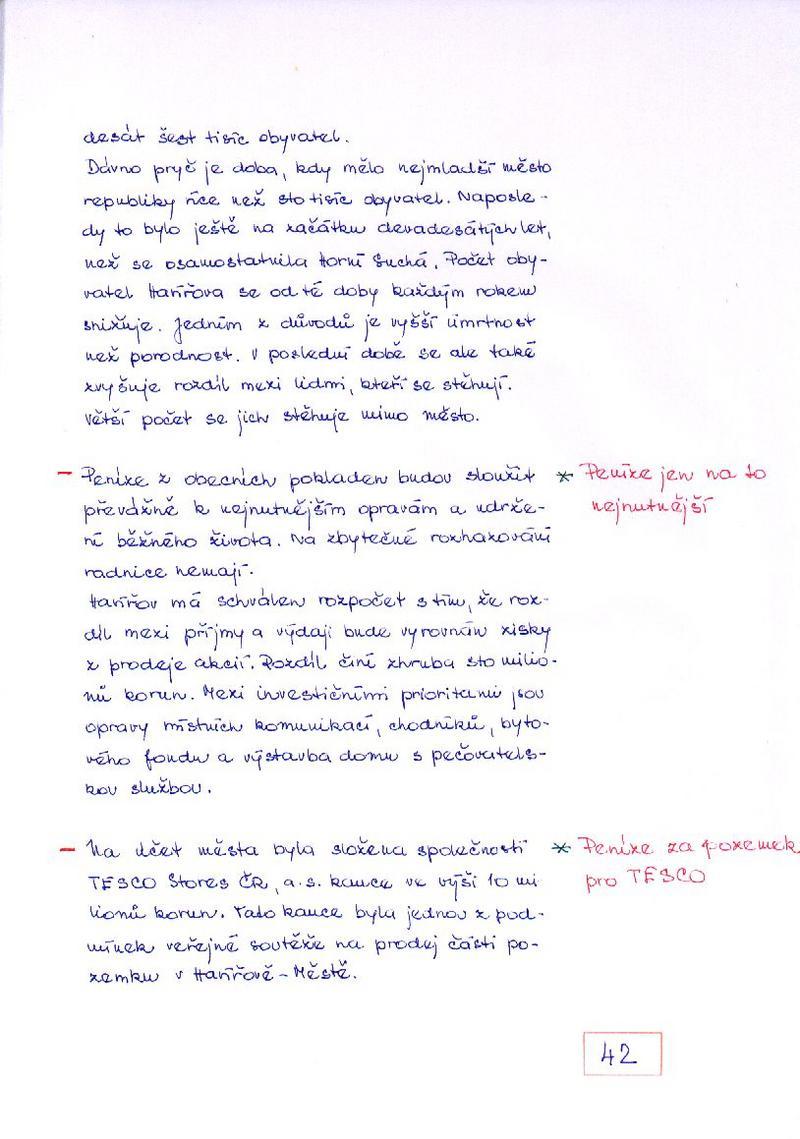 desát šest tisíc obyvatel.
Dávno pryč je doba, kdy mělo nejmladší město
republiky více než sto tisíc obyvatel. Naposle-
dy to bylo ještě na začátku devadesátých let,
než se osamostatnila Horní Suchá. Počet oby-
vatel Havířova se od té doby každým rokem
snižuje. Jedním z důvodů je vyšší úmrtnost
než porodnost. V poslední době se ale také
zvyšuje rozdíl mezi lidmi, kteří se stěhují.
Větší počet se jich stěhuje mimo město.
- Peníze z obecních pokladen budou sloužit * Peníze jen na to
převážně k nejnutnějším opravám a udrže- nejnutnější
ní běžného života. Na zbytečné rozhazování
radnice nemají.
Havířov má schválen rozpočet s tím, že roz-
díl mezi příjmy a výdaji bude vyrovnán zisky
z prodeje akcií. Rozdíl činí zhruba sto milio-
nů korun. Mezi investičními prioritami jsou
opravy místních komunikací, chodníků, byto-
vého fondu a výstavba domu s pečovatels-
kou službou.
- Na účet města byla složena společností * Peníze za pozemek
TESCO Stores ČR, a.s. kauce ve výši 10 mi pro TESCO
lionů korun. Tato kauce byla jednou z pod-
mínek veřejné soutěže na prodej části po-
zemku v Havířově - Městě.
42